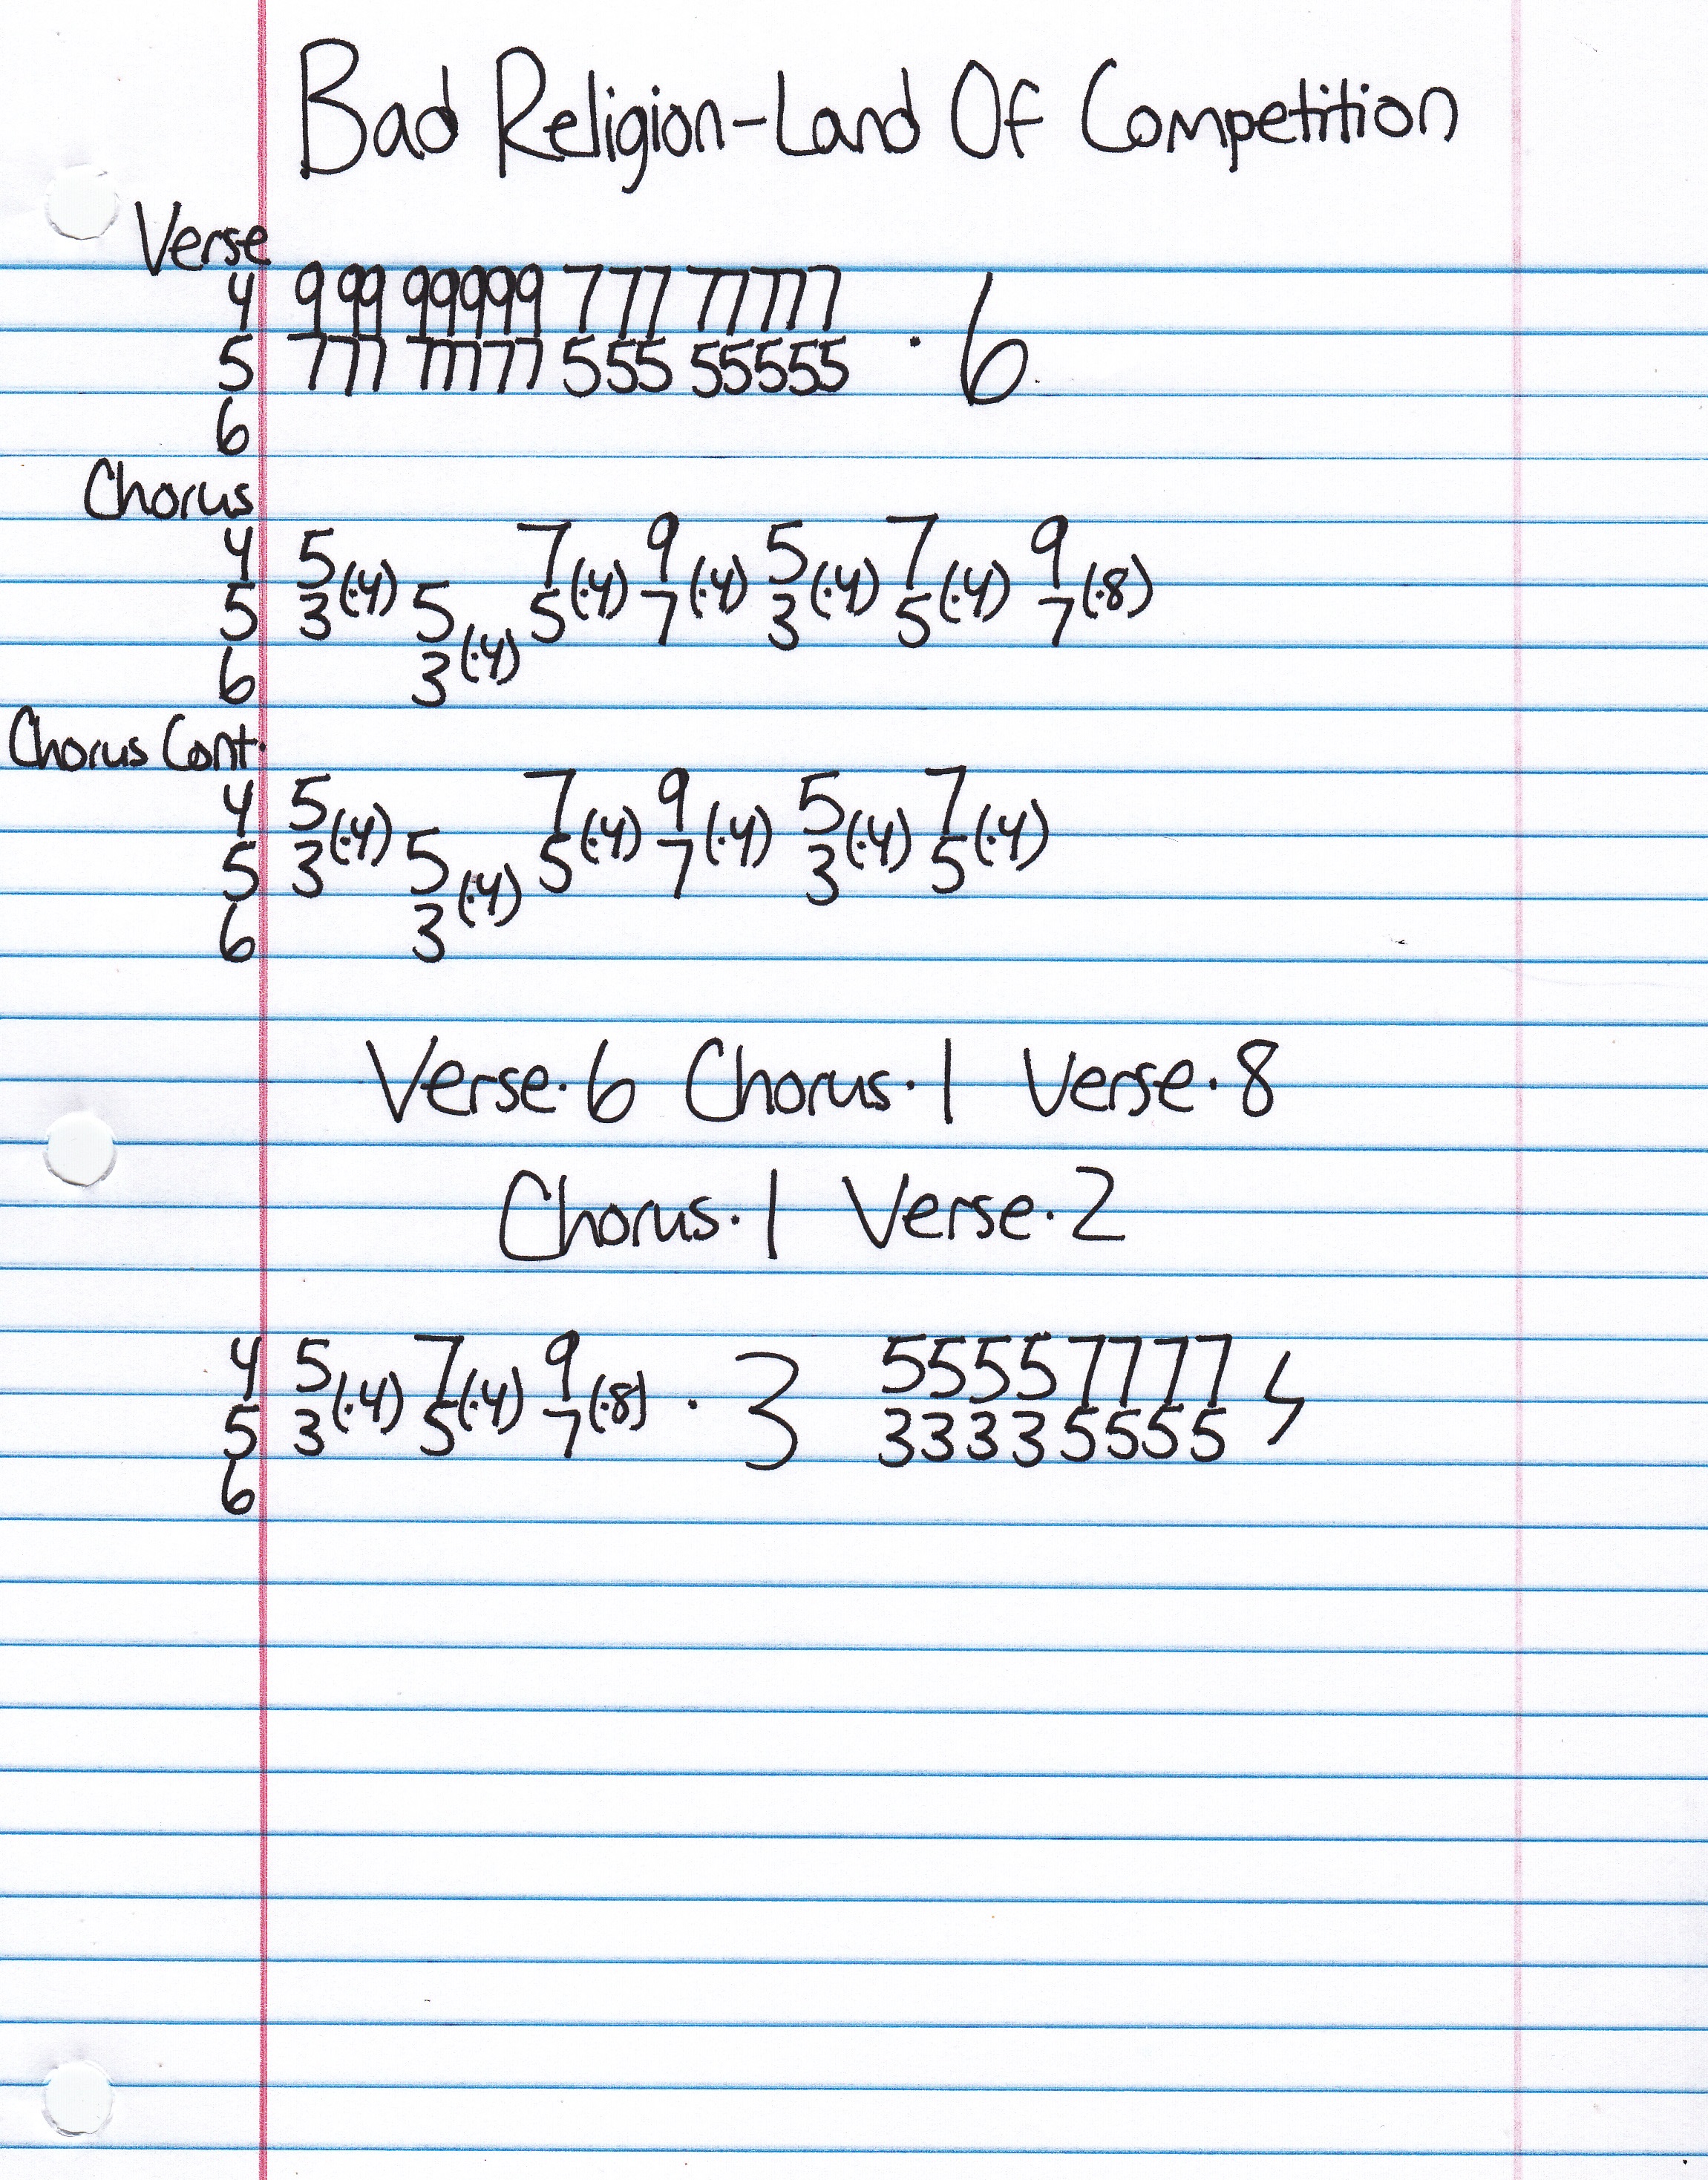 Bad Religion-Land Of Competition
Verse
4 999 99999 777 77777
5 777 77777 555 55555 · 6
6
Chorus
4 5(·4) 7(·4) 9(·4) 5(·4) 7(·4) 9(·8)
5 3 5(·4) 5 7 3 5 7
6 3
Chorus Cont.
4 5(·4) 7(·4) 9(·4) 5(·4) 7(·4)
5 3 5(·4) 5 7 3 5
6 3
Verse·6 Chorus·1 Verse·8
Chorus·1 Verse·2
4 5(·4) 7(·4) 9(·8) · 3 55557777
5 3 5 7 33335555
6